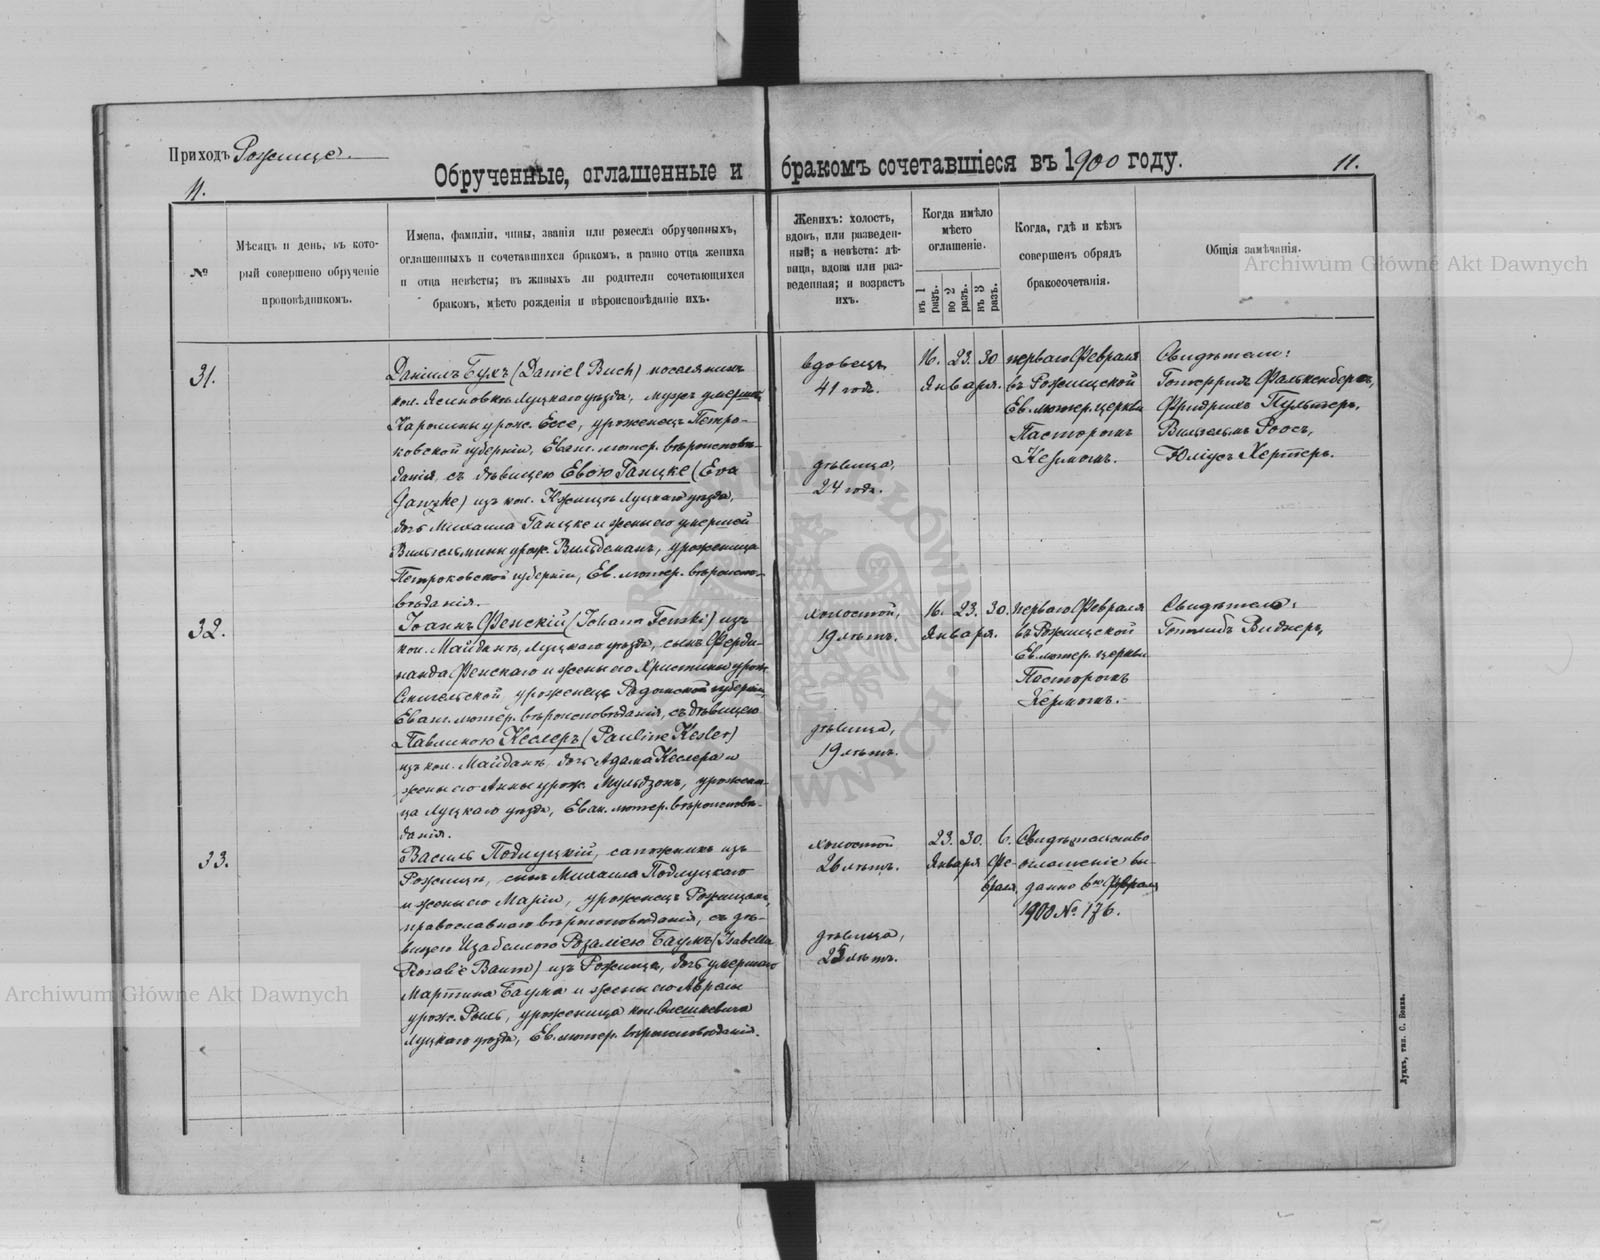 Приходъ Рожище.
Обрученные, оглашенные и бракомъ сочетавшіеся въ 1900 году.
11.
11.
№
Мѣсяцъ и день, въ кото-
рый совершено обрученіе
проповѣдникомъ.
Имена, фамиліи, чины, званія или ремесла обрученныхъ,
оглашенныхъ и сочетавшихся бракомъ, а равно отца жениха
и отца невѣсты; въ живыхъ ли родители сочетающихся
бракомъ, мѣсто рожденія и вѣроисповѣданіе ихъ.
Женихъ: холостъ,
вдовъ, или разведен-
ный; а невѣста: дѣ-
вица, вдова или раз-
веденная; и возрастъ
ихъ.
Когда имѣло
мѣсто
оглашеніе.
въ 1
разъ.
во 2
разъ.
въ 3
разъ.
Когда, гдѣ и кѣмъ
совершенъ обрядъ
бракосочетанія.
Общія замѣчанія.
Archiwum Główne Akt Dawnych
31.
Даніилъ Бухъ (Daniel Buch) поселянинъ
кол. Ясиновка Луцкаго уѣзда, мужъ умершей
Каролины урож. Ессе, уроженецъ Петро-
ковской губерніи, Еванг. лютер. вѣроисповѣ-
данія, съ дѣвицею Евою Ганцке (Eva
Ganzke) изъ кол. Луцкаго уѣзда,
дочь Михаила Ганцке и жены его умершей
Вильгельмины урож. Вильдеманъ, уроженица
Петроковской губерніи, Ев. лютер. вѣроиспо-
вѣданія.
вдовецъ
41 года.
дѣвица,
24 года.
16. 23. 30
Января.
перваго Февраля
въ Рожищской
Ев. лютер. церкви
Пасторомъ
Кермомъ.
Свидѣтели:
Готфридъ Фалькенбергъ,
Фридрихъ Пультеръ,
Вильгельмъ Роосъ,
Юліусъ Хертеръ.
32.
Іоаннъ Фенскій (Johann Fenski) изъ
кол. Майданъ, Луцкаго уѣзда, сынъ Ферди-
нанда Фенскаго и жены его Христины урож.
уроженецъ Радомской губерніи,
Еванг. лютер. вѣроисповѣданія, съ дѣвицею
Павлиною Кеслеръ (Pauline Kesler)
изъ кол. Майданъ, дочь Адама Кеслера и
жены его Анны урож. Мульдзонъ, урожени-
ца Луцкаго уѣзда, Еван. лютер. вѣроисповѣ-
данія.
холостой,
19 лѣтъ.
дѣвица,
19 лѣтъ.
16. 23. 30.
Января.
перваго Февраля
въ Рожищской
Ев. лютер. церкви
Пасторомъ
Кермомъ.
Свидѣтель:
Готлибъ Виднеръ,
33.
Василь Подлуцкій, сапожникъ изъ
Рожищъ, сынъ Михаила Подлуцкаго
и жены его Маріи, уроженецъ Рожищъ,
православнаго вѣроисповѣданія, съ дѣ-
вицею Изабеллою Розаліею Баумъ (Isabella
Rosalie Baum) изъ Рожища, дочь умершаго
Мартина Баума и жены его
урож. Роль, уроженица кол.
Луцкаго уѣзда, Ев. лютер. вѣроисповѣданія.
холостой
26 лѣтъ.
дѣвица,
23 лѣтъ.
23. 30. 6.
Января Фе-
враля
Свидѣтельство
оглашеніе вы-
дано 6го Февраля
1900 № 176.
Archiwum Główne Akt Dawnych
Луцкъ, тип. С. Бокка.